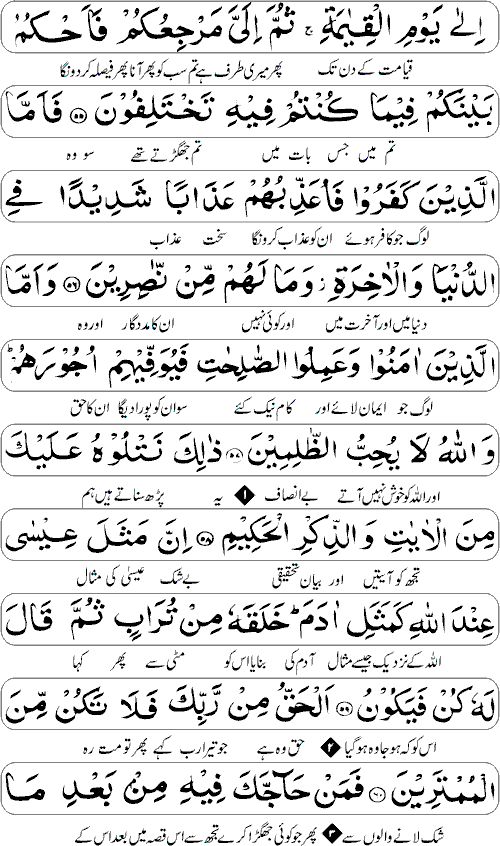 اِلٰى يَوْمِ الْقِيٰمَةِ ۚ ثُمَّ اِلَىَّ مَرْجِعُكُمْ فَاَحْكُمُ
قیامت کے دن تک پھر میری طرف ہے تم سب کو پھر آنا پھر فیصلہ کردونگا
بَيْنَكُمْ فِيْمَا كُنْتُمْ فِيْهِ تَخْتَلِفُوْنَ ﴿۵۵﴾ فَاَمَّا
تم میں جس بات میں تم جھگڑتے تھے سو وہ
الَّذِيْنَ كَفَرُوْا فَاُعَذِّبُهُمْ عَذَابًا شَدِيْدًا فِى
لوگ جو کافر ہوئے ان کو عذاب کرونگا سخت عذاب
الدُّنْيَا وَالْاٰخِرَةِ ۫ وَمَا لَهُمْ مِّنْ نّٰصِرِيْنَ ﴿۵۶﴾ وَاَمَّا
دنیا میں اور آخرت میں اور کوئی نہیں ان کا مددگار اور وہ
الَّذِيْنَ اٰمَنُوْا وَعَمِلُوا الصّٰلِحٰتِ فَيُوَفِّيْهِمْ اُجُوْرَهُمْ ؕ
لوگ جو ایمان لائے اور کام نیک کئے سو ان کو پورا دیگا ان کا حق
وَاللّٰهُ لَا يُحِبُّ الظّٰلِمِيْنَ ﴿۵۷﴾ ذٰلِكَ نَتْلُوْهُ عَلَيْكَ
اور اللہ کو خوش نہیں آتے بے انصاف ۱ یہ پڑھ سناتے ہیں ہم
مِنَ الْاٰيٰتِ وَالذِّكْرِ الْحَكِيْمِ ﴿۵۸﴾ اِنَّ مَثَلَ عِيْسٰى
تجھ کو آیتیں اور بیان تحقیقی بے شک عیسیٰ کی مثال
عِنْدَ اللّٰهِ كَمَثَلِ اٰدَمَ ؕ خَلَقَهٗ مِنْ تُرَابٍ ثُمَّ قَالَ
اللہ کے نزدیک جیسے مثال آدم کی بنایا اس کو مٹی سے پھر کہا
لَهٗ كُنْ فَيَكُوْنُ ﴿۵۹﴾ اَلْحَقُّ مِنْ رَّبِّكَ فَلَا تَكُنْ مِّنَ
اس کو کہ ہو جا وہ ہو گیا ۲ حق وہ ہے جو تیرا رب کہے پھر تو مت رہ
الْمُمْتَرِيْنَ ﴿۶۰﴾ فَمَنْ حَآجَّكَ فِيْهِ مِنْ بَعْدِ مَا
شک لانے والوں سے ۳ پھر جو کوئی جھگڑا کرے تجھ سے اس قصہ میں بعد اس کے